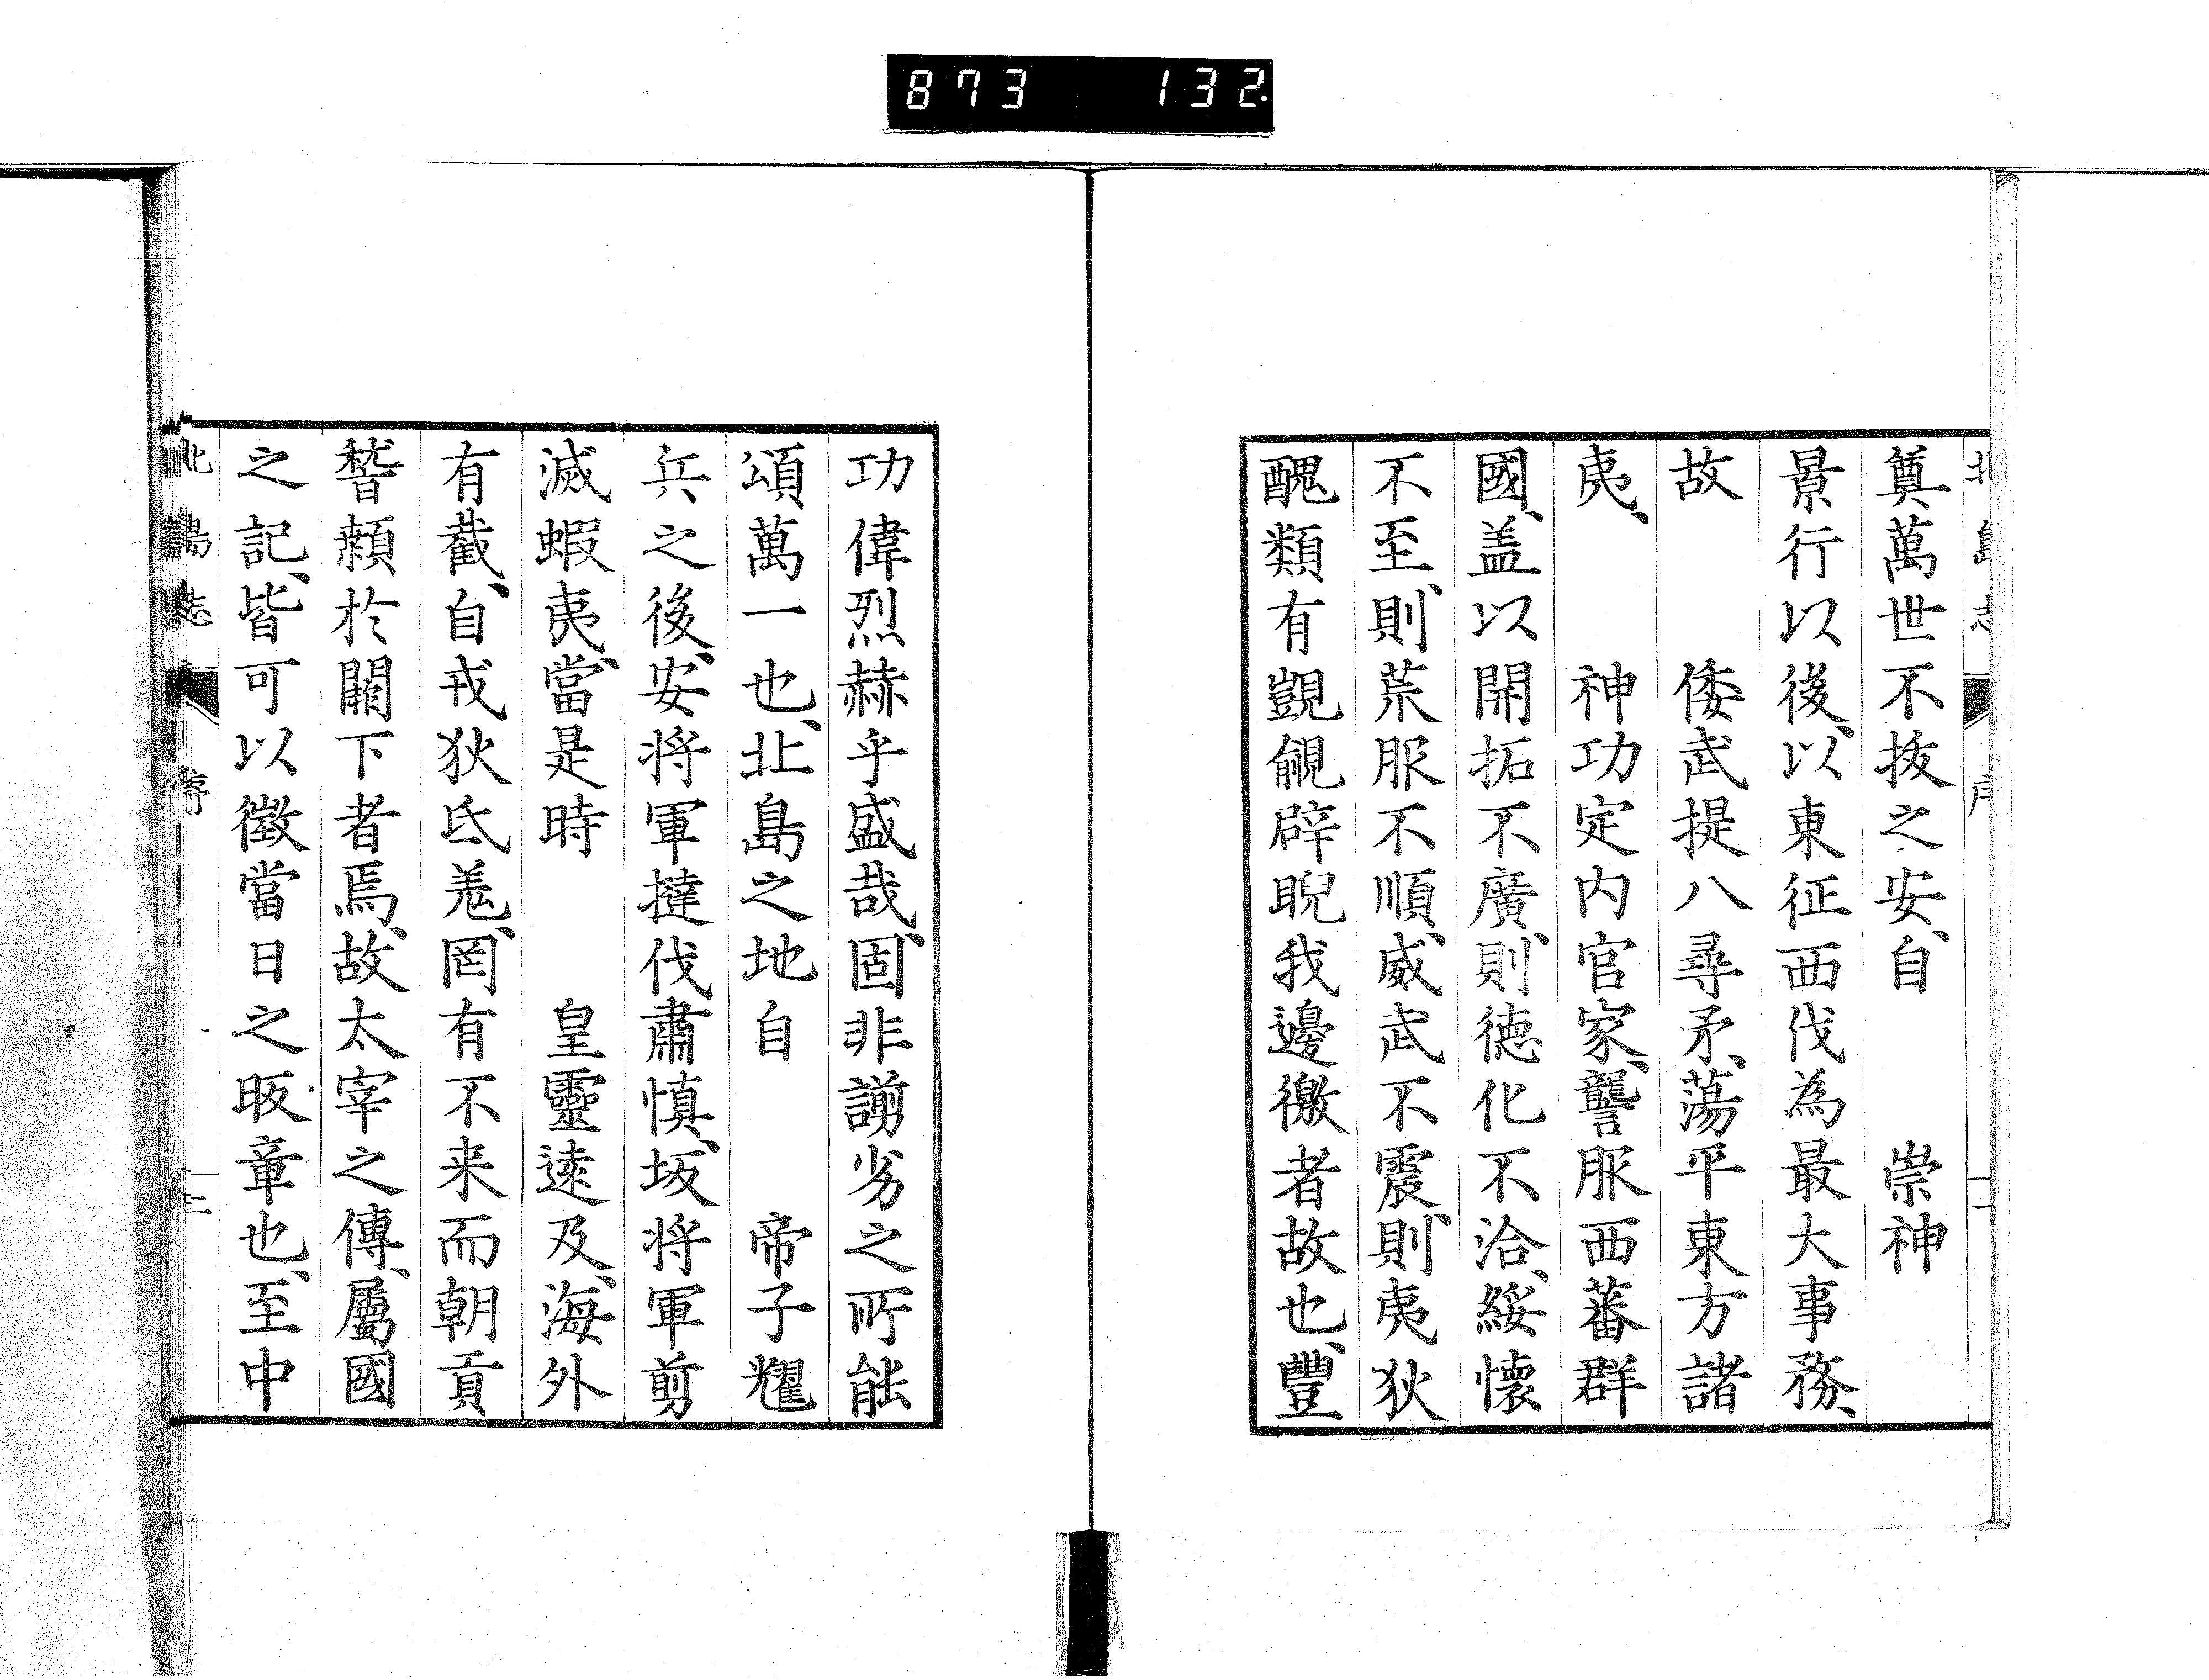 873 132
北島志 序
奠萬世不拔之安、自 崇神
景行以後、以東征西伐為最大事務、
故 倭武提八尋矛、蕩平東方諸
夷、 神功定内官家、讋服西蕃群
國、盖以開拓不廣、則德化不洽、綏懷
不至、則荒服不順、威武不震、則夷狄
醜類有覬覦辟睨我邊徼者故也、豐
功偉烈赫乎盛哉、固非謭劣之所能
頌萬一也、北島之地自 帝子耀
兵之後、安将軍撻伐肅慎、坂将軍剪
滅蝦夷、當是時 皇靈遠及、海外
有截、自戎狄氐羗、罔有不来而朝貢
稽顙於闕下者焉、故太宰之傳、屬國
之記、皆可以徵當日之昄章也、至中
北島志 序 三